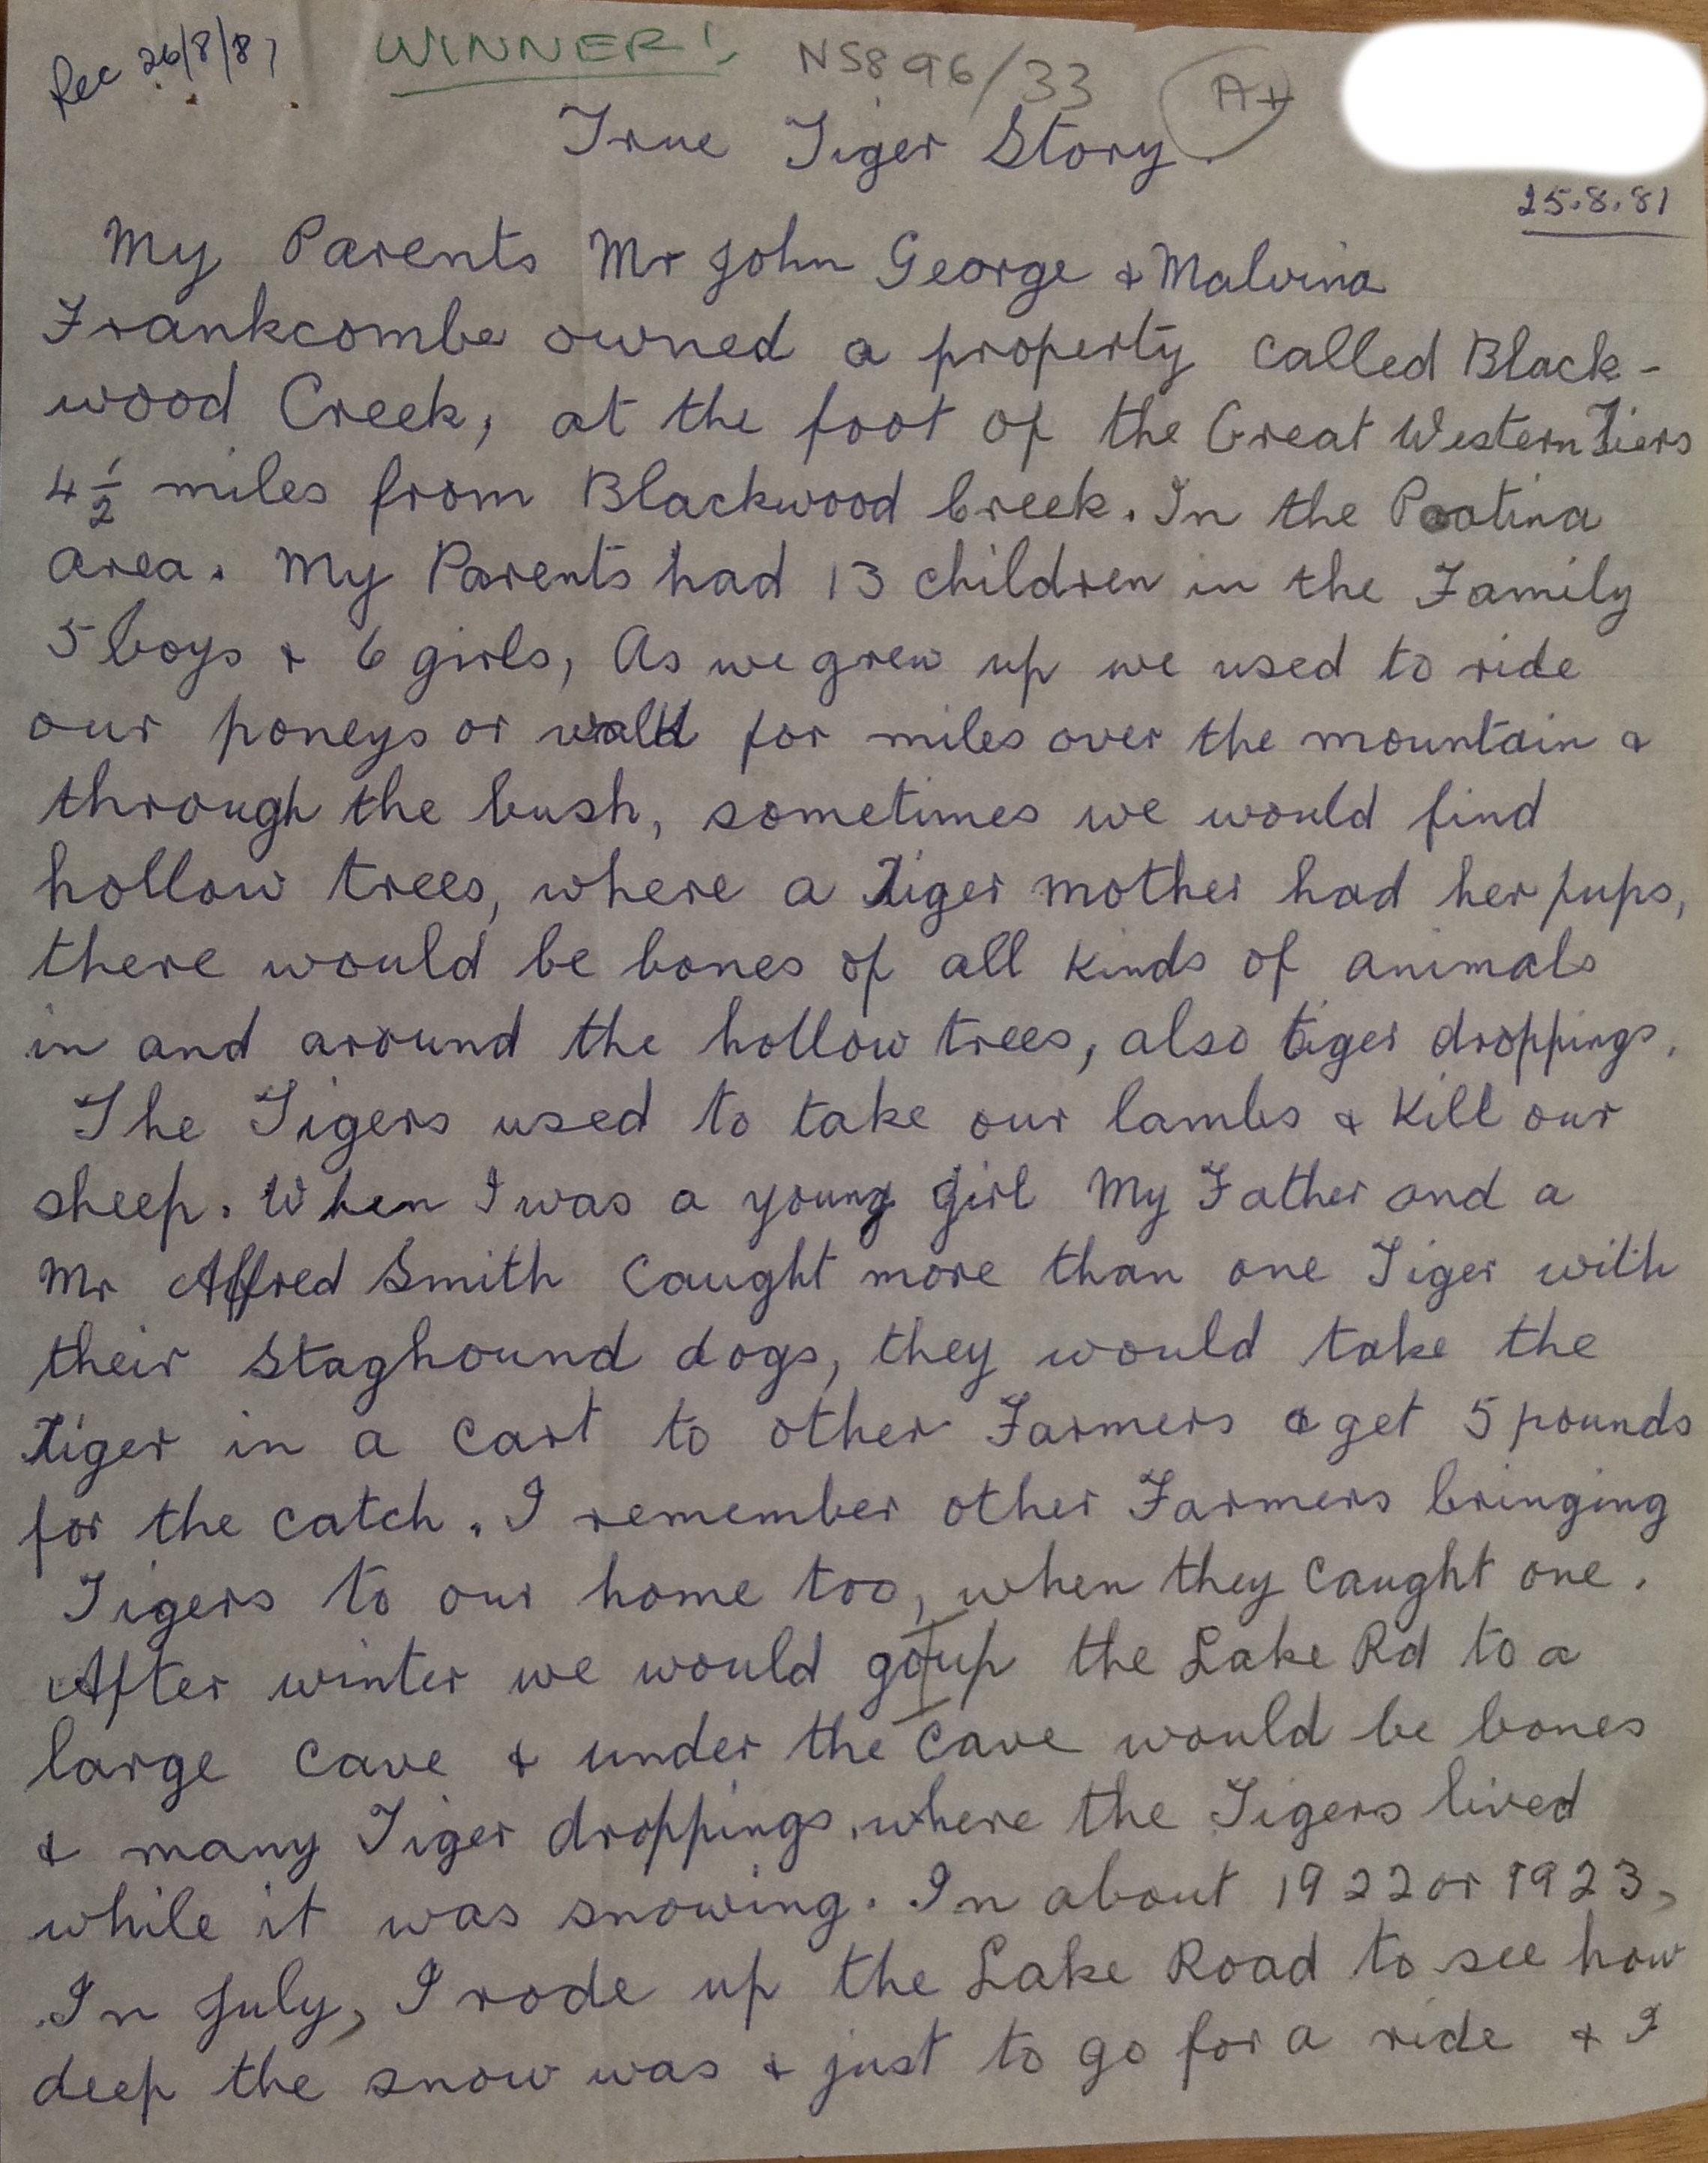 Rec 26/8/81 WINNER! NS896/33 A+
True Tiger Story.
25.8.81
My Parents Mr John George & Malvina
Frankcombe owned a property called Black-
wood Creek, at the foot of the Great Western Tiers
4½ miles from Blackwood Creek. In the Poatina
area. My Parents had 13 children in the Family
5 boys & 6 girls, As we grew up we used to ride
our poneys or walk for miles over the mountain &
through the bush, sometimes we would find
hollow trees, where a Tiger mother had her pups,
there would be bones of all kinds of animals
in and around the hollow trees, also tiger droppings.
The Tigers used to take our lambs & Kill our
sheep. When I was a young girl My Father and a
Mr Alfred Smith caught more than one Tiger with
their staghound dogs, they would take the
Tiger in a cart to other Farmers & get 5 pounds
for the catch. I remember other Farmers bringing
Tigers to our home too, when they caught one.
After winter we would go up the Lake Rd to a
large cave & under the cave would be bones
& many Tiger droppings, where the Tigers lived
while it was snowing. In about 1922 or 1923,
In July, I rode up the Lake Road to see how
deep the snow was & just to go for a ride & I